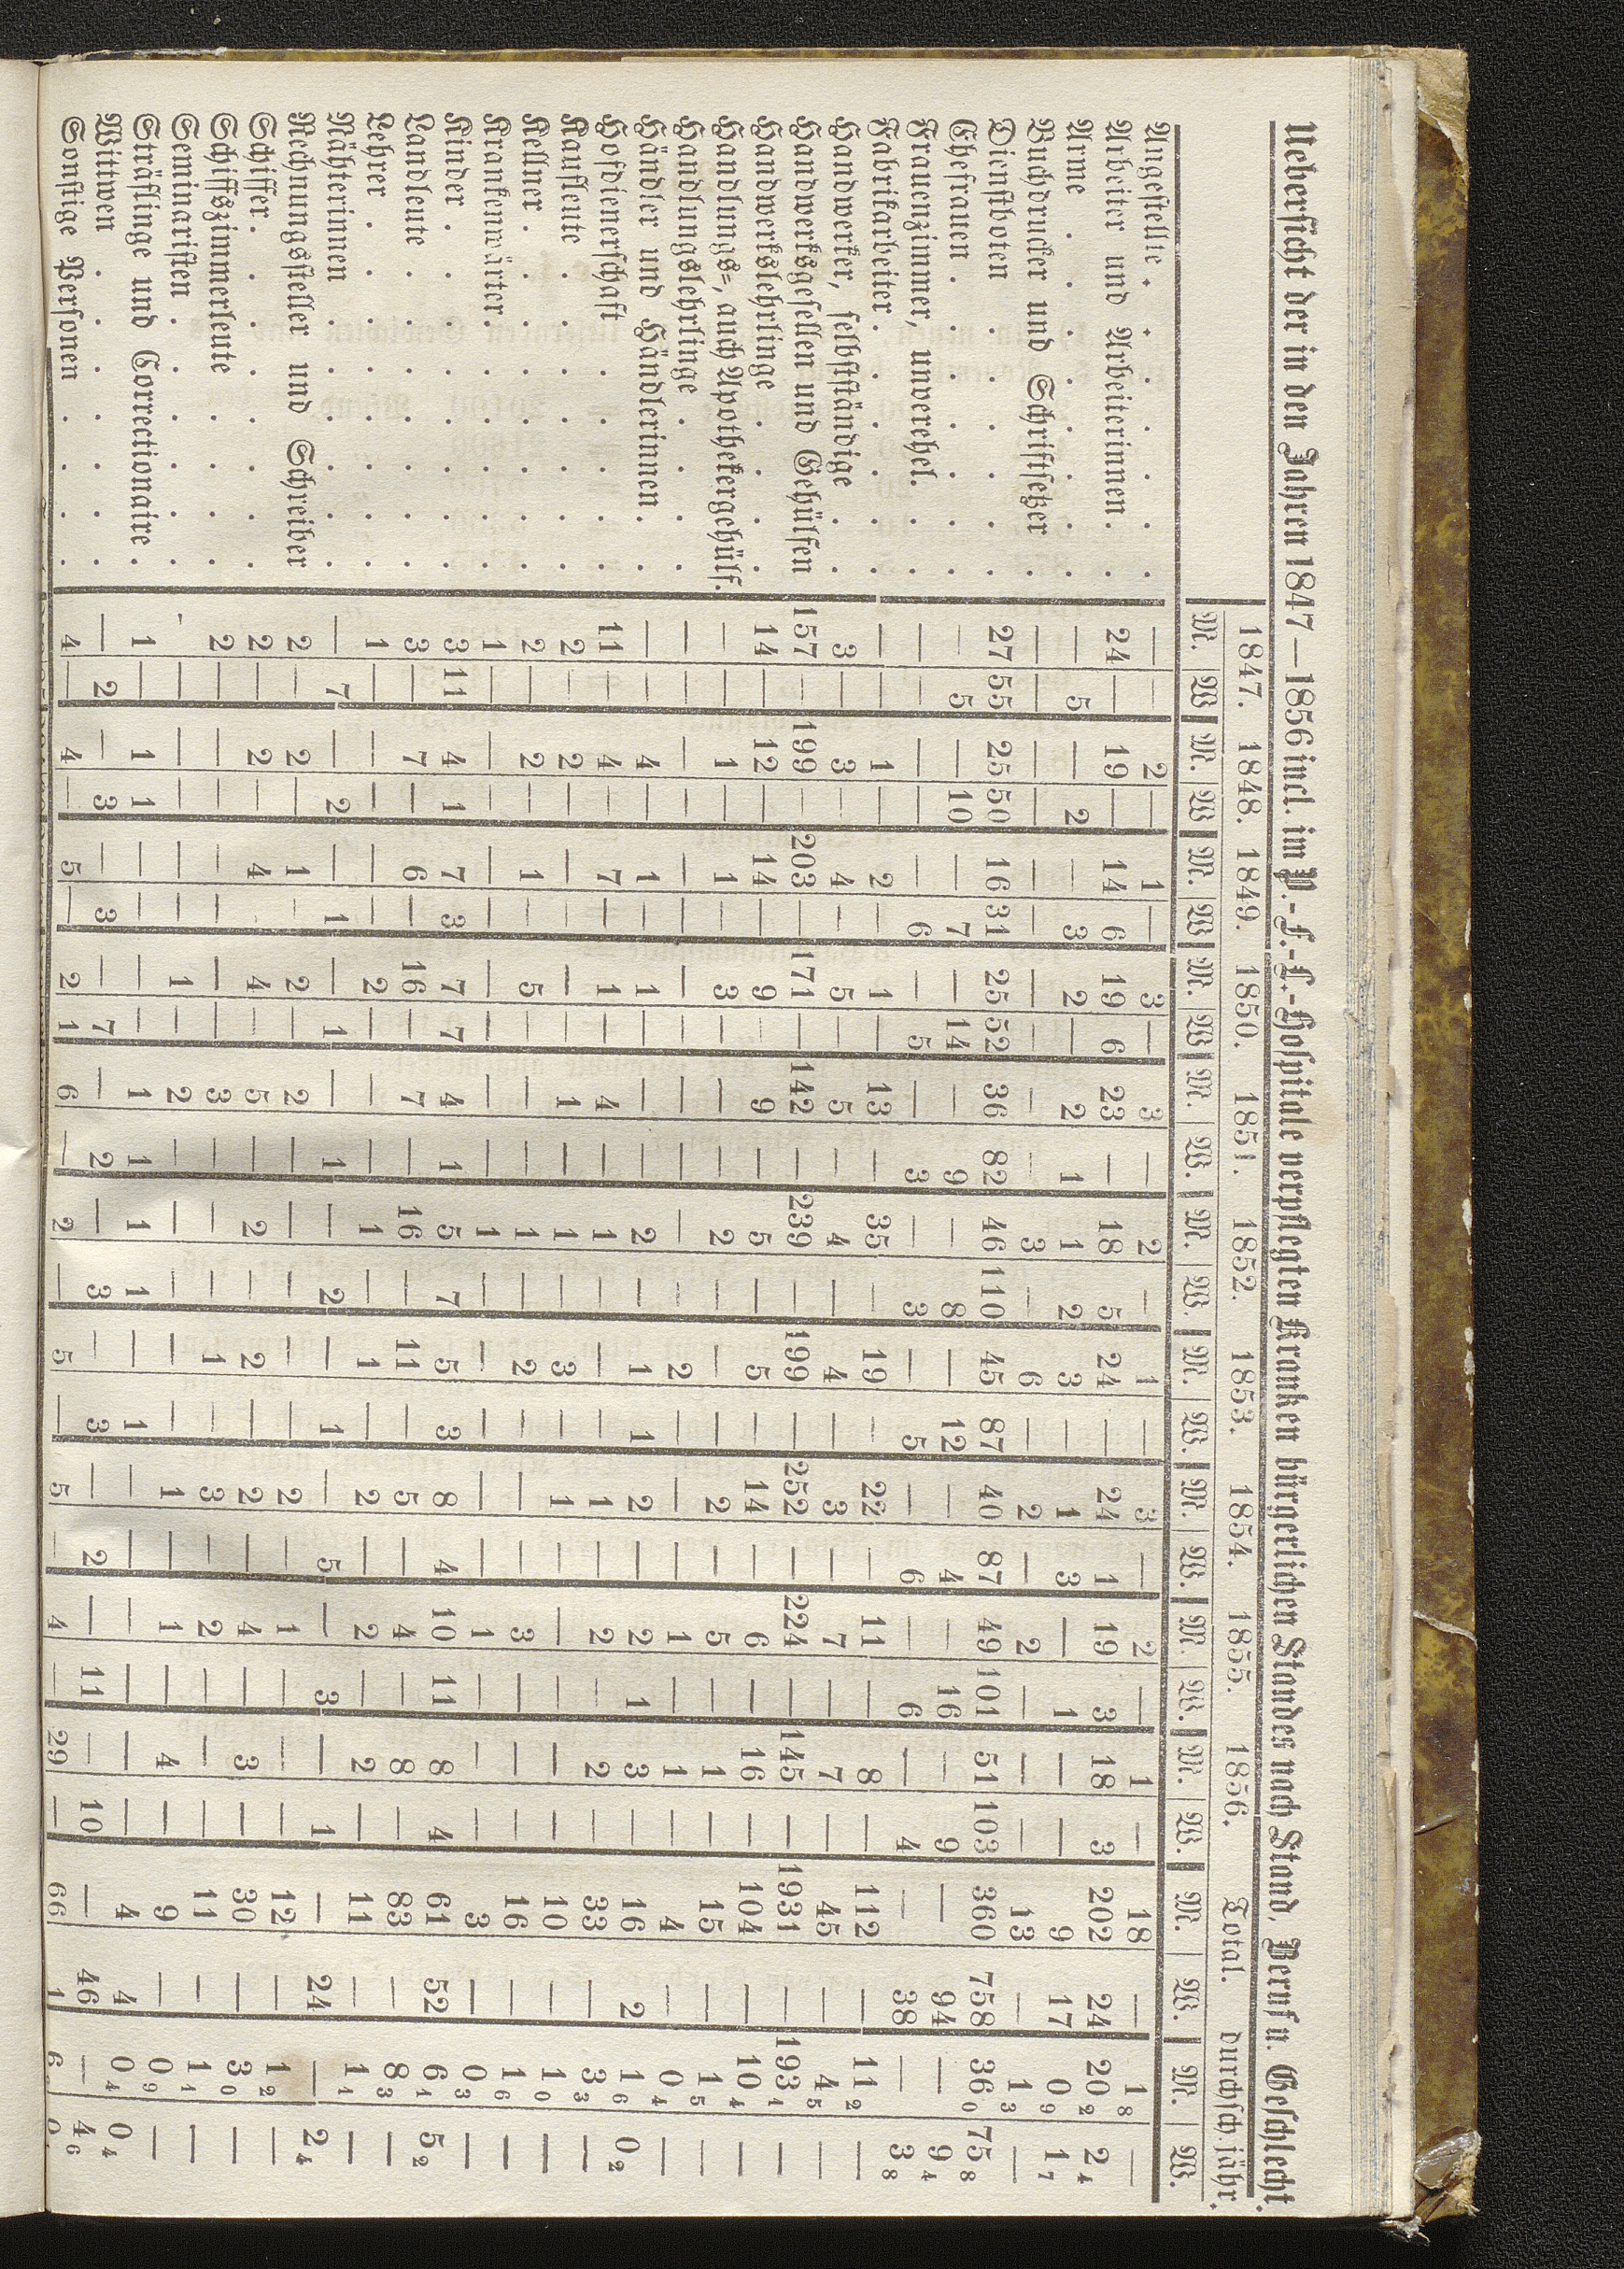 Uebersicht der in den Jahren 1847—1856 incl. im P.-F.-L.-Hospitale verpflegten Kranken bürgerlichen Standes nach Stand, Beruf u. Geschlecht.
1847. 1848. 1849. 1850. 1851. 1852. 1853. 1854. 1855. 1856. Total. durchsch. jähr.
M. W M. W M. W M. W M. W. M. W. M. W. M. W. M. W. M. W. M. W. M. W.
Angestellte . . . . . . — — 2 — 1 — 3 — 3 — 2 — 1 — 3 — 2 — 1 — 18 — 1₈ —
Arbeiter und Arbeiterinnen . . 24 — 19 — 14 6 19 6 23 — 18 5 24 — 24 1 19 3 18 3 202 24 20₂ 2₄
Arme . . . . . . . — 5 — 2 — 3 2 — 2 1 1 2 3 — 1 3 — 1 — — 9 17 0₉ 1₇
Buchdrucker und Schriftsetzer — — — — — — — — — — 3 — 6 — 2 — 2 — — — 13 — 1₃ —
Dienstboten . . . . . 27 55 25 50 16 31 25 52 36 82 46 110 45 87 40 87 49 101 51 103 360 758 36₀ 75₈
Ehefrauen . . . . . . — 5 — 10 — 7 — 14 — 9 — 8 — 12 — 4 — 16 — 9 — 94 — 9₄
Frauenzimmer, unverehel. . . — — — — — 6 — 5 — 3 — 3 — 5 — 6 — 6 — 4 — 38 — 3₈
Fabrikarbeiter . . . . . — — 1 — 2 — 1 — 13 — 35 — 19 — 22 — 11 — 8 — 112 — 11₂ —
Handwerker, selbstständige . . 3 — 3 — 4 — 5 — 5 — 4 — 4 — 3 — 7 — 7 — 45 — 4₅ —
Handwerksgesellen und Gehülfen 157 — 199 — 203 — 171 — 142 — 239 — 199 — 252 — 224 — 145 — 1931 — 193₁ —
Handwerkslehrlinge . . . . 14 — 12 — 14 — 9 — 9 — 5 — 5 — 14 — 6 — 16 — 104 — 10₄ —
Handlungs-, auch Apothekergehülf. — — 1 — 1 — 3 — — — 2 — — — 2 — 5 — 1 — 15 — 1₅ —
Handlungslehrlinge . . . . — — — — — — — — — — — — 2 — — — 1 — 1 — 4 — 0₄ —
Händler und Händlerinnen . . — — 4 — 1 — 1 — — — 2 — 1 1 2 — 2 1 3 — 16 2 1₆ 0₂
Hofdienerschaft . . . . . 11 — 4 — 7 — 1 — 4 — 1 — — — 1 — 2 — 2 — 33 — 3₃ —
Kaufleute . . . . . . 2 — 2 — — — — — 1 — 1 — 3 — 1 — — — — — 10 — 1₀ —
Kellner . . . . . . . 2 — 2 — 1 — 5 — — — 1 — 2 — — — 3 — — — 16 — 1₆ —
Krankenwärter . . . . . 1 — — — — — — — — — 1 — — — — — 1 — — — 3 — 0₃ —
Kinder . . . . . . . 3 11 4 1 7 3 7 7 4 1 5 7 5 3 8 4 10 11 8 4 61 52 6₁ 5₂
Landleute . . . . . . 3 — 7 — 6 — 16 — 7 — 16 — 11 — 5 — 4 — 8 — 83 — 8₃ —
Lehrer . . . . . . . 1 — — — — — 2 — — — 1 — 1 — 2 — 2 — 2 — 11 — 1₁ —
Nähterinnen . . . . . — 7 — 2 — 1 — 1 — 1 — 2 — 1 — 5 — 3 — 1 — 24 — 2₄
Rechnungssteller und Schreiber 2 — 2 — 1 — 2 — 2 — — — — — 2 — 1 — — — 12 — 1₂ —
Schiffer . . . . . . . 2 — 2 — 4 — 4 — 5 — 2 — 2 — 2 — 4 — 3 — 30 — 3₀ —
Schiffszimmerleute . . . . 2 — — — — — — — 3 — — — 1 — 3 — 2 — — — 11 — 1₁ —
Seminaristen . . . . . — — — — — 1 — 2 — — — — — 1 — 1 — 4 — 9 — 0₉ —
Sträflinge und Correctionaire . 1 — 1 1 — — — — 1 1 1 1 — 1 — — — — — — 4 4 0₄ 0₄
Wittwen . . . . . . . — 2 — 3 — 3 — 7 — 2 — 3 — 3 — 2 — 11 — 10 — 46 — 4₆
Sonstige Personen . . . . 4 — 4 — 5 — 2 1 6 — 2 — 5 — 5 — 4 — 29 — 66 1 6 0